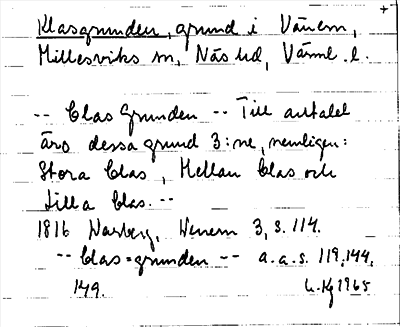 +
Klasgrunden, grund i Vänern,
Millesviks sn, Näs hd, Värml. l.
-- Clas Grunden -- Till antalet
äro dessa grund 3:ne, nemligen:
Stora Clas, Mellan Clas och
Lilla Clas. --
1816 Warberg, Wenern 3, s. 114.
-- Clas=grunden -- a.a.s. 119, 144,
149.
1965